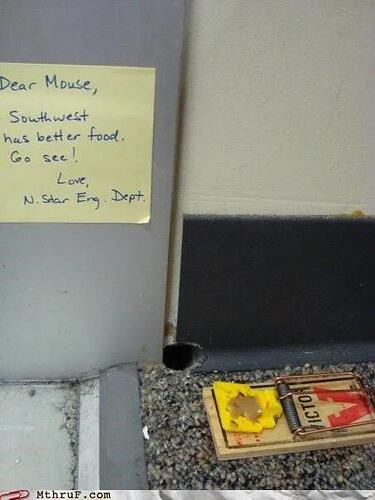 Dear Mouse,
Southwest
has better food.
Go see!
Love,
N. Star Eng. Dept.
VICTO
MThruF.com